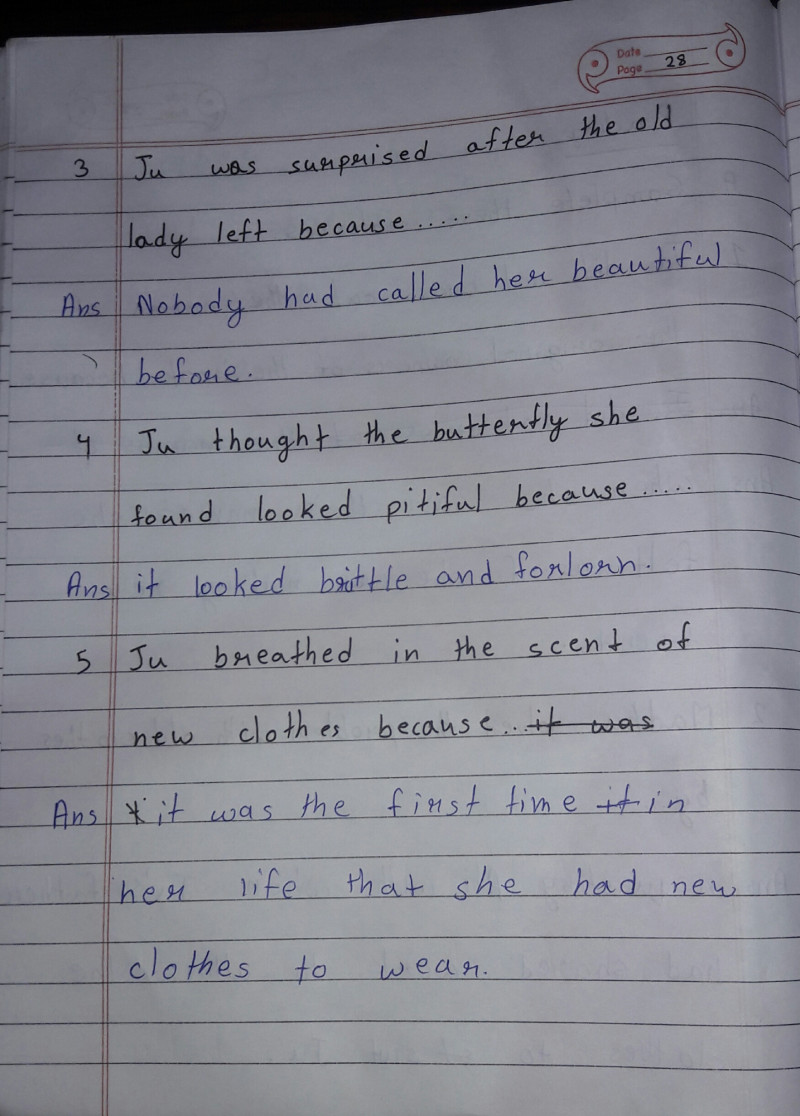 Date
Page 28
3 Ju was surprised after the old
lady left because .....
Ans Nobody had called her beautiful
before.
4 Ju thought the butterfly she
found looked pitiful because .....
Ans it looked brittle and forlorn.
5 Ju breathed in the scent of
new clothes because... it was
Ans *it was the first time it in
her life that she had new
clothes to wear.